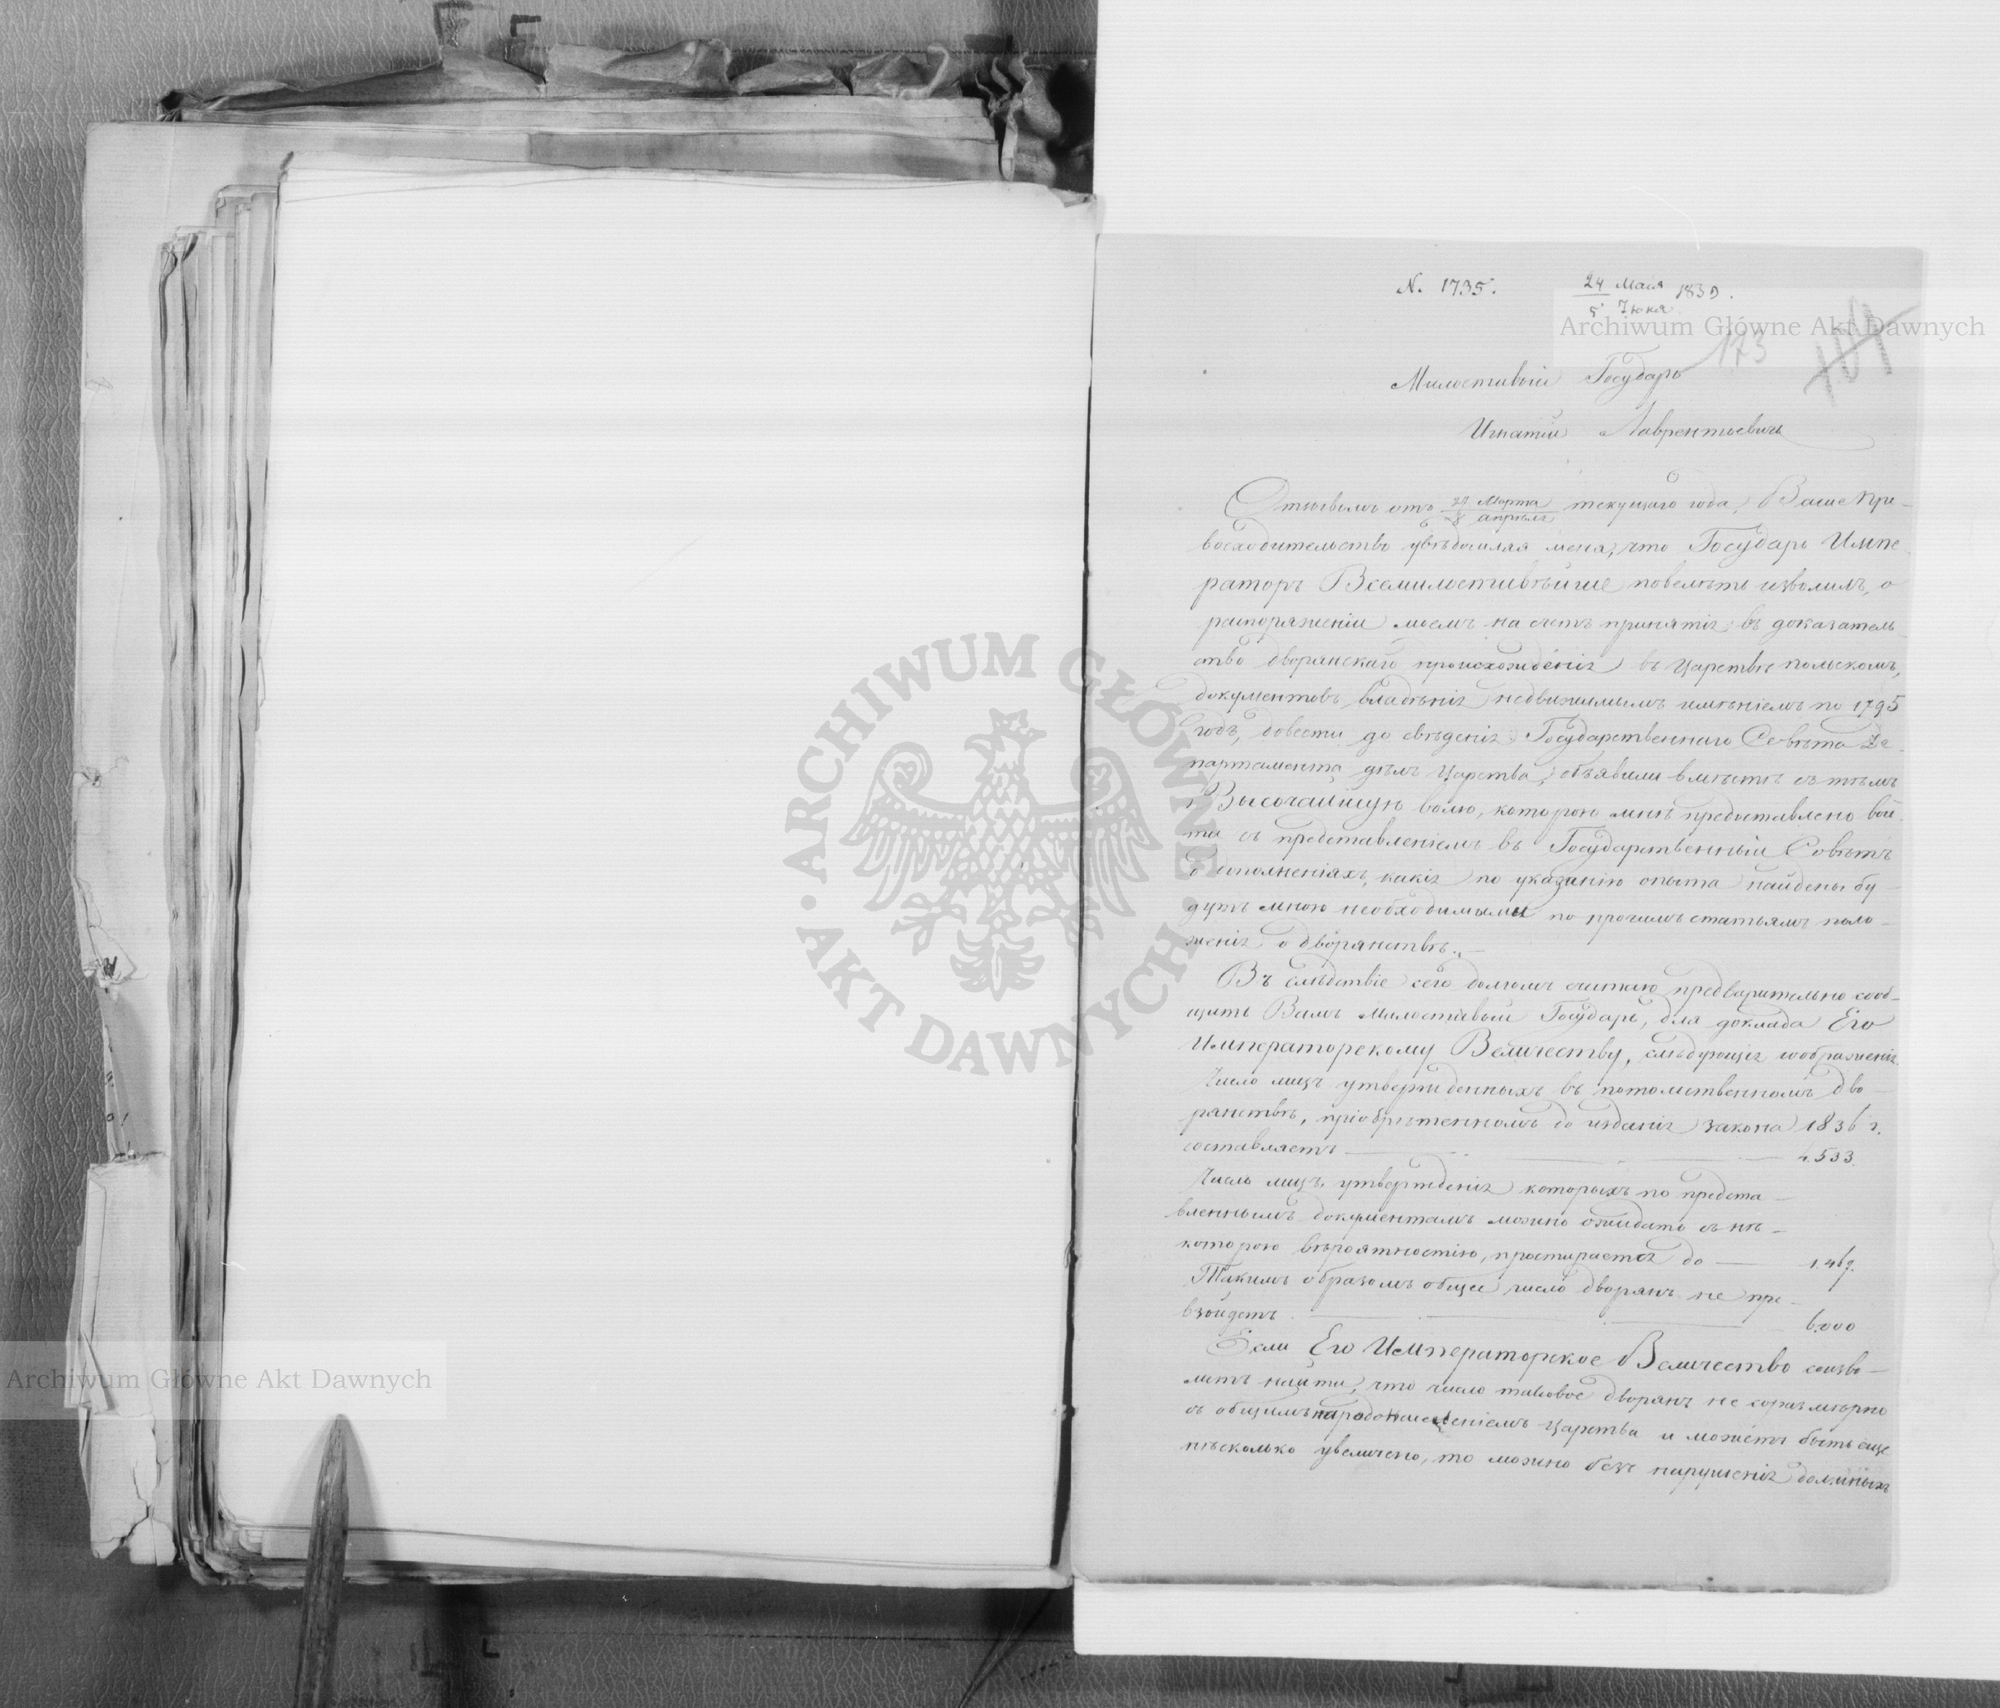 N. 1735.
24 Мая 1839.
5 Іюня
173
Милостивый Государь
Игнатій Лаврентьевичь
Отзывомъ отъ 27 Марта текущаго года, Ваше Пре-
8 апрѣля
восходительство увѣдомляя меня, что Государь Импе-
раторъ Всемилостивѣйше повелѣть изволилъ, о
распоряженіи моемъ на счетъ принятія въ доказатель-
ство дворянскаго происхожденія въ Царствѣ польскомъ,
документовъ владѣнія недвижимымъ имѣніемъ по 1795
годъ, довести до свѣденія Государственнаго Совѣта Де-
партамента дѣлъ Царства, объявили вмѣстѣ съ тѣмъ
Высочайшую волю, которою мнѣ предоставлено вой-
ти съ представленіемъ въ Государственный Совѣтъ
о дополненіяхъ, какія по указанію опыта найдены бу-
дутъ мною необходимыми по прочимъ статьямъ поло-
женія о дворянствѣ.
Въ слѣдствіе сего долгомъ считаю предварительно сооб-
щить Вамъ Милостивый Государь, для доклада Его
Императорскому Величеству, слѣдующія соображенія
Число лицъ утвержденныхъ въ потомственномъ дво-
рянствѣ, пріобрѣтенномъ до изданія закона 1836 г.
составляетъ 4.533.
Число лицъ утвержденія которыхъ по предста-
вленнымъ документамъ можно ожидать съ нѣ-
которою вѣроятностію, простирается до 1.467.
Такимъ образомъ общее число дворянъ не пре-
взойдетъ 6.000
Если Его Императорское Величество соизво-
литъ найти, что число таковое дворянъ не соразмѣрно
съ общимъ народонаселеніемъ Царства и можетъ быть еще
нѣсколько увеличено, то можно безъ нарушенія должныхъ
Archiwum Główne Akt Dawnych
Archiwum Główne Akt Dawnych
· ARCHIWUM GŁÓWNE · AKT DAWNYCH